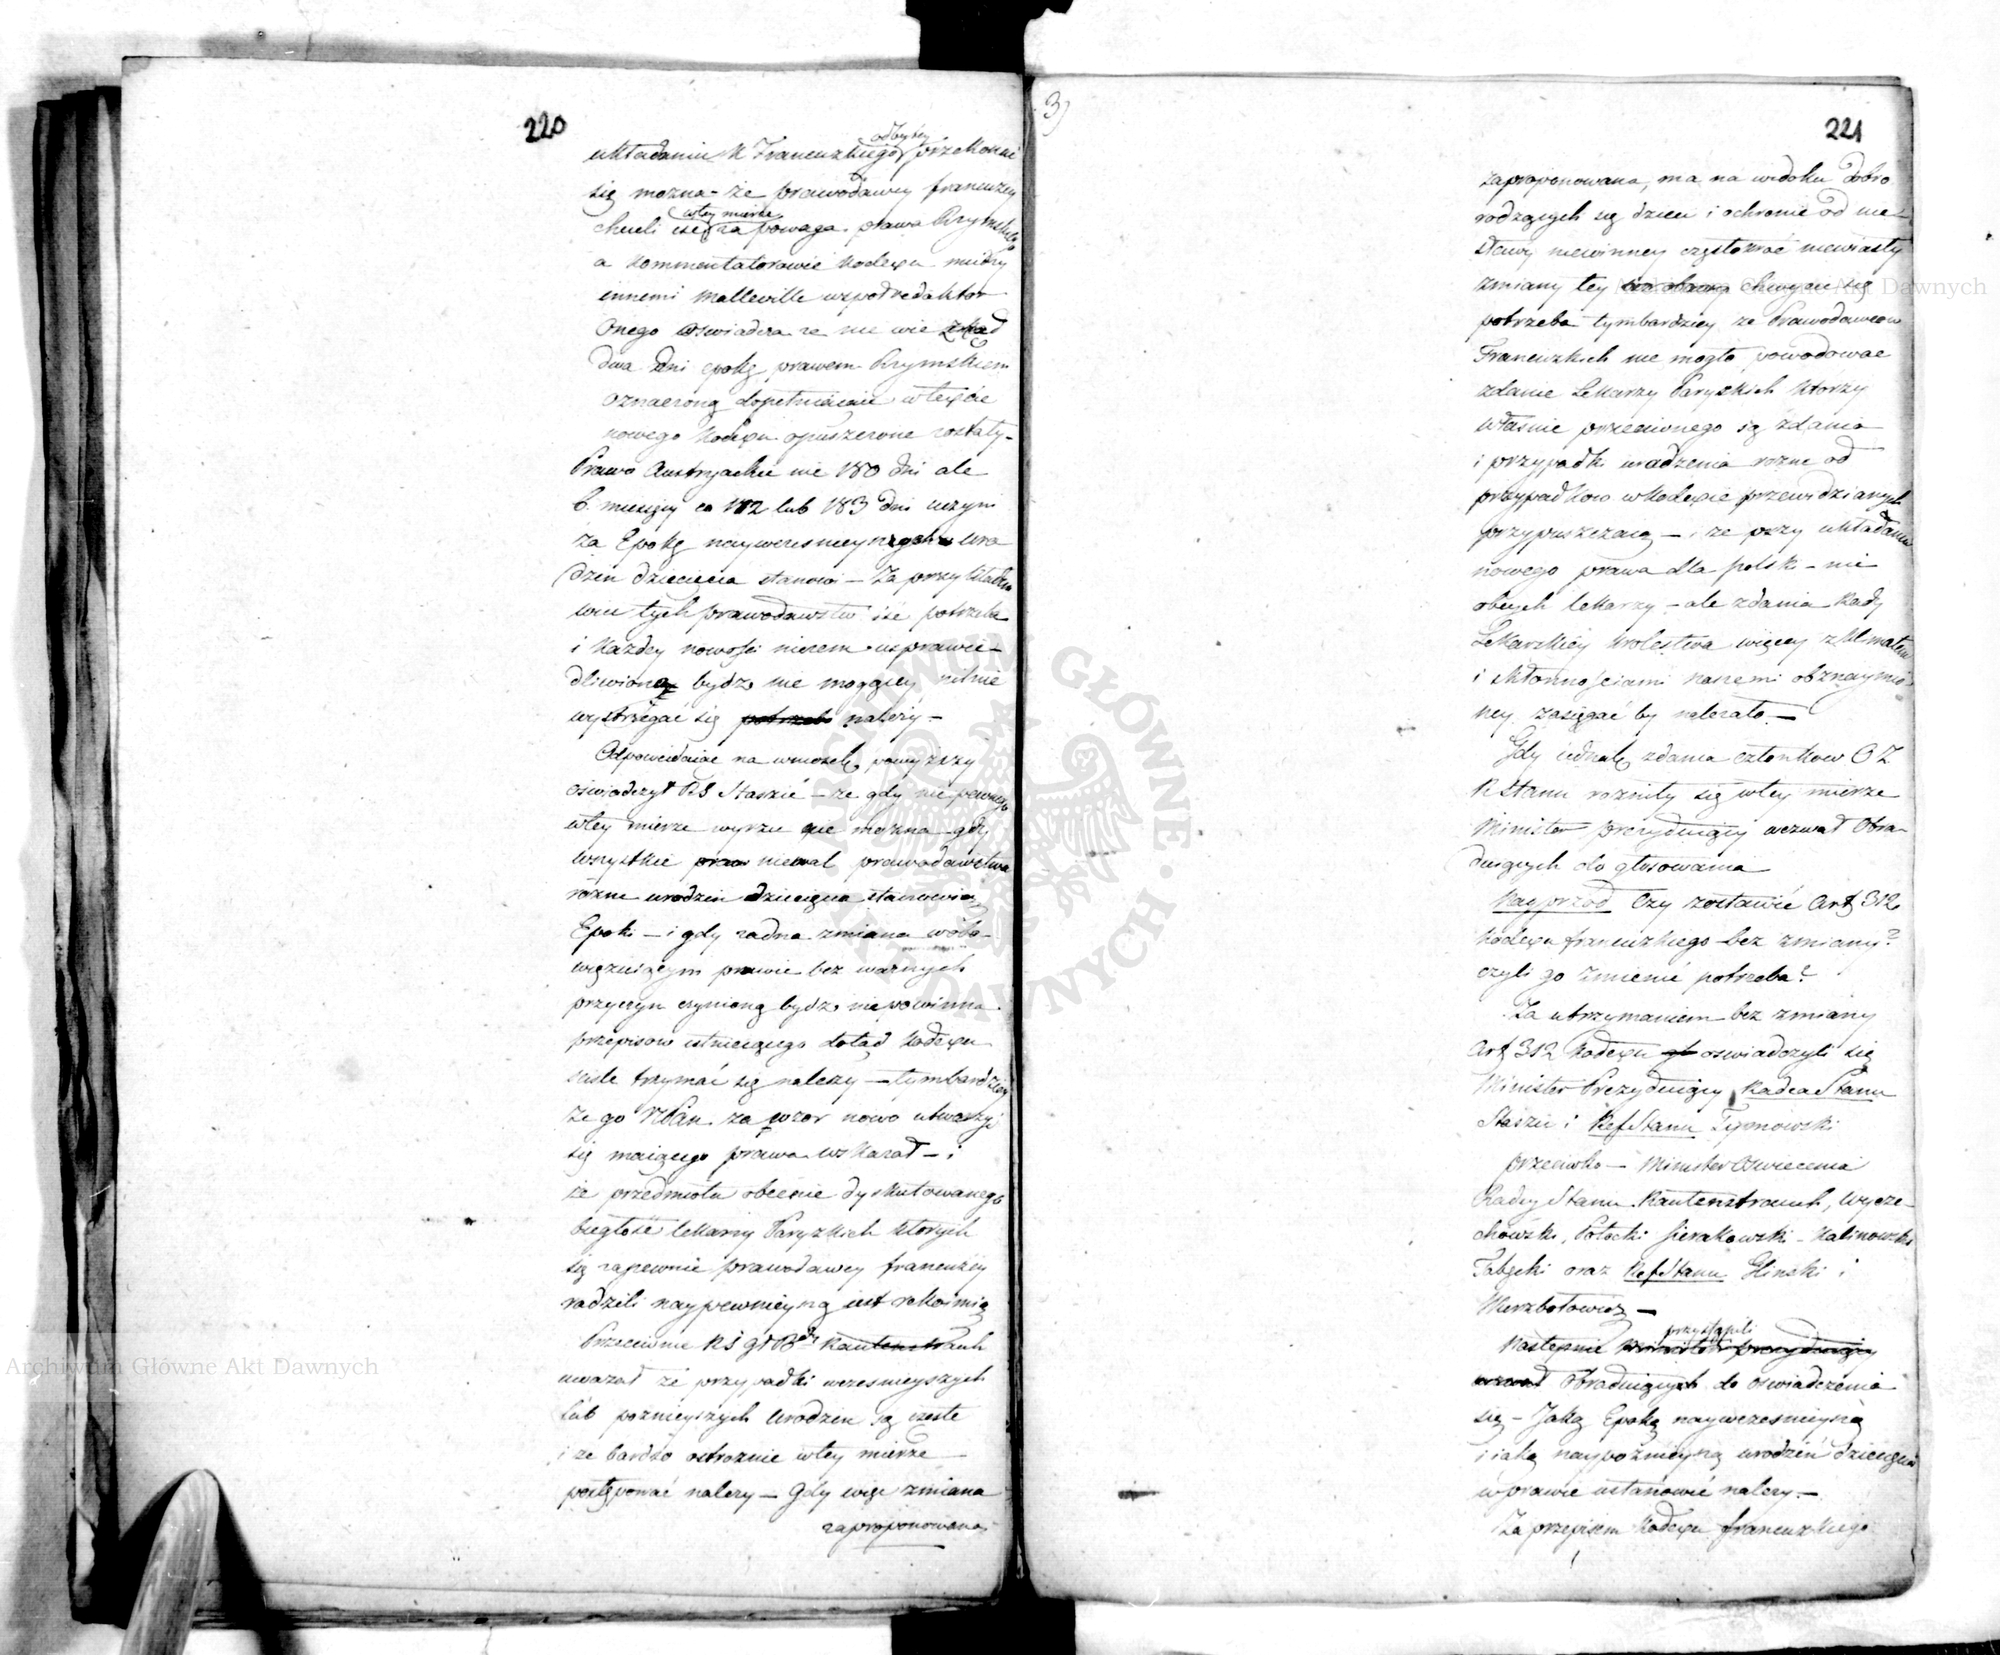 220
układaniu K Francuzkiego odbytey przekonać
się można - że prawodawcy francuzcy
chcieli iść wtey mierze za powagą prawa Rzymskiego
a kommentatorowie kodexu między
innemi Malleville wspołredaktor
onego oswiadcza ze nie wie zkąd
dwa dni epokę prawem Rzymskiem
oznaczoną dopełniaiące w texcie
nowego kodexu opuszczone zostały -
Prawo Austryackie nie 180 dni ale
6 miesięcy co 182 lub 183 dni uczyni
za Epokę naywczesnieyszych uro
dzin dziecięcia stanowi - Za przykładem
więc tych prawodawstw iść potrzeba
i każdey nowości niczem usprawie-
dliwioney bydz nie mogącey pilnie
wystrzegać się potrzeba należy -
Odpowiadaiąc na wniosek powyższy
oświadczył RS Staszic - że gdy nic pewnego
wtey mierze wyrzec nie można gdy
wszystkie praw niemal prawodawstwa
różne urodzin dziecięcia stanowią
Epoki - i gdy żadna zmiana w obo-
wiązuiącym prawie bez ważnych
przyczyn czynioną bydz niepowinna
przepisow istnieiącego dotąd kodexu
scisle trzymać się należy - tymbardziey
że go NPan za wzor nowo utworzyć
się maiącego prawa wskazał - i
że przedmiotu obecnie dyskutowanego
biegłość lekarzy Paryzkich ktorych
się zapewnie prawodawcy francuzcy
radzili naypewnieyszą iest rękoimią
Przeciwnie RS Kautenstrauch
uważał że przypadki wczesnieyszych
lub poznieyszych urodzin są częste
i że bardzo ostrożnie wtey mierze
postępować należy - Gdy więc zmiana
zaproponowana
3)
221
zaproponowana, ma na widoku dobro
rodzących się dzieci i ochronie od nie-
sławy niewinney częstokroć niewiasty
zmiany tey chwycić się
potrzeba tymbardziey że Prawodawcow
Francuzkich nie mogło powodować
zdanie Lekarzy Paryzkich ktorzy
własnie przeciwnego są zdania
i przypadki urodzenia rożne od
przypadkow w kodexie przewidzianych
przypuszczaią - i że przy układaniu
nowego prawa dla polski - nie
obcych lekarzy - ale zdania Rady
Lekarskiey krolestwa więcey z klimatem
i skłonnościami naszemi obznaymio
ney zasięgać by należało -
Gdy iednak zdania członkow OZ
R Stanu rożniły się wtey mierze
Minister prezyduiący wezwał Obra-
duiących do głosowania
Nayprzod Czy zostawić Art 312
kodexu francuzkiego bez zmiany?
czyli go zmienić potrzeba?
Za utrzymaniem bez zmiany
Art 312 kodexu gł oswiadczyli się
Minister Prezyduiący Radca Stanu
Staszic i Ref Stanu Tymowski
przeciwko - Minister Oswiecenia
Radcy Stanu Kautenstrauch, Wycze-
chowski, Potocki Sierakowski - Kalinowski
Tabęcki oraz Ref Stanu Gliński i
Wierzbołowicz -
Następnie przystąpili Minister prezyduiący
wezwał Obraduiących do oswiadczenia
się - Jaką Epokę naywczesnieyszą
i iaką naypoźnieyszą urodzeń dziecięcia
w prawie ustanowić należy -
Za przepisem kodexu francuzkiego
ARCHIWUM GŁÓWNE AKT DAWNYCH
Archiwum Główne Akt Dawnych
Archiwum Główne Akt Dawnych